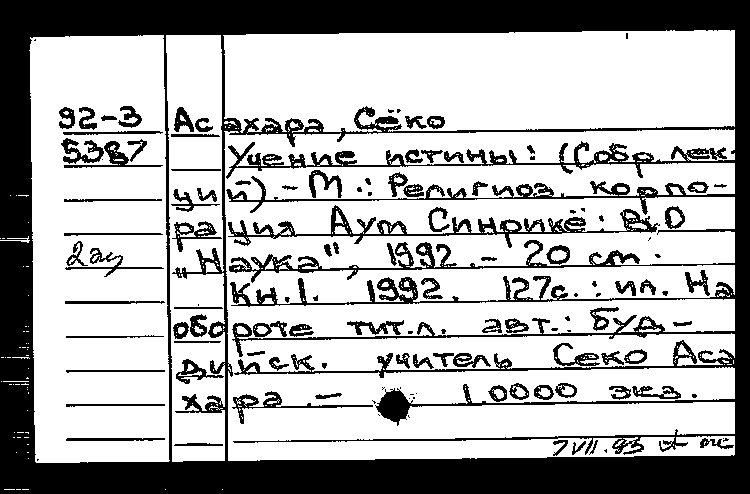 92-3 Асахара, Сёко
5387 Учение истины: (Собр. лек-
ций). - М.: Религиоз. корпо-
рация Аум Синрикё: ВО
2 ац „Наука", 1992. - 20 cm.
Кн.1. 1992. 127с.: ил. На
обороте тит.л. авт.: Буд-
дийск. учитель Секо Аса
хара. - 10000 экз.
7 VII.93